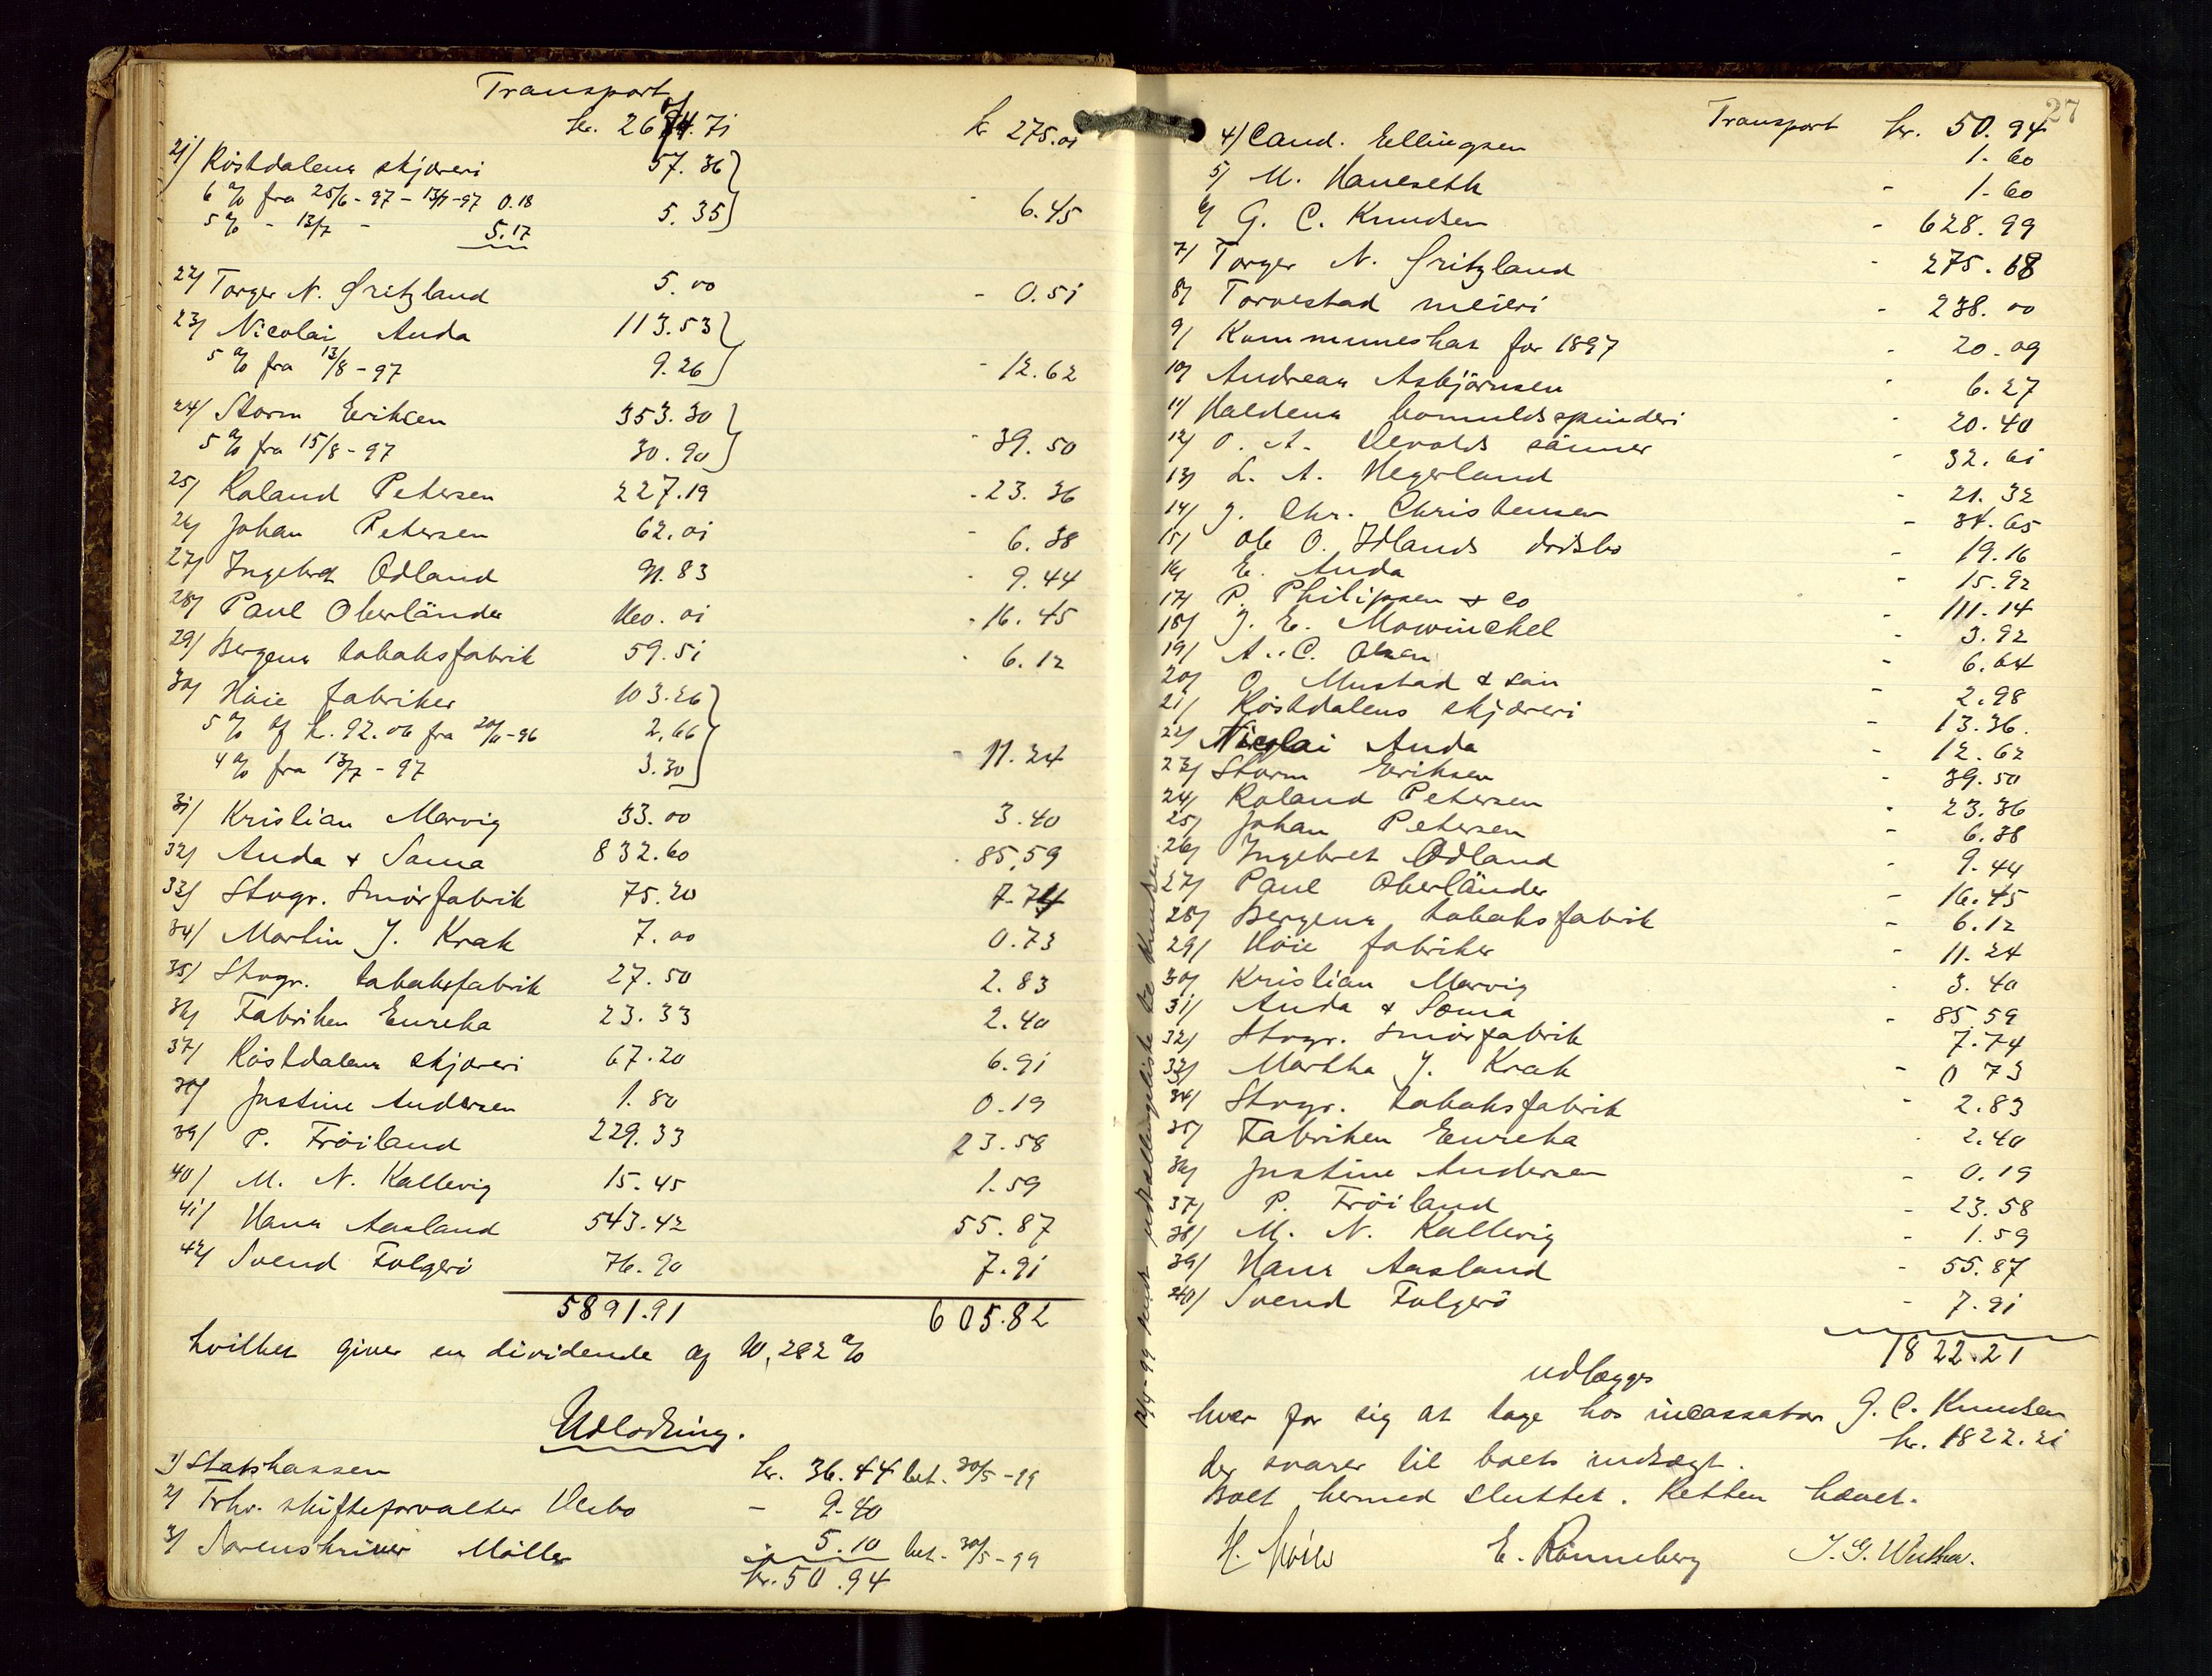 Transport
kr. 2674.71 kr 275.01
21/ Röstdalens skjæreri 57.36
6 % fra 25/6-97 - 13/7-97 0.18 5.35 - 6.45
5 % - 13/7 - 5.17
22/ Torger N. Gritzland 5.00 - 0.51
23/ Nicolai Anda 113.53
5 % fra 13/8-97 9.26 - 12.62
24/ Storm Eriksen 353.30
5 % fra 15/8-97 30.90 - 39.50
25/ Roland Petersen 227.19 - 23.36
26/ Johan Petersen 62.01 - 6.38
27/ Ingebret Ødland 91.83 - 9.44
28/ Paul Oberländer 160.01 - 16.45
29/ Bergens tobaksfabrik 59.51 - 6.12
30/ Höie fabriker 103.26
5 % af k. 92.06 fra 20/11-96 2,66
4 % fra 13/7-97 3.30 - 11.24
31/ Kristian Mervig 33.00 3.40
32/ Anda & Soma 832.60 - 85,59
33/ Stvgr. Smörfabrik 75.20 7.74
34/ Martin J. Krak 7.00 0.73
35/ Stvgr. tobaksfabrik 27.50 2.83
36/ Fabriken Eureka 23.33 2.40
37/ Röstdalens skjæreri 67.20 6.91
38/ Justine Andersen 1.80 0.19
39/ P. Fröiland 229.33 23.58
40/ M. N. Kallevig 15.45 1.59
41/ Hans Aasland 543.42 55.87
42/ Svend Folgerö 76.90 7.91
5891.91 605.82
hvilket giver en dividende af 10,282 %
Udlodning.
1/ Statskassen kr. 36.44 bet. 30/5-99
2/ Frhv. skifteforvalter Vebo - 9.40
3/ Sorenskriver Möller - 5.10 bet. 30/5-99
kr. 50.94
27
Transport kr. 50.94
4/ Cand. Ellingsen 1.60
5/ M. Haneseth - 1.60
6/ G. C. Knudsen - 628.99
7/ Torger N. Gritzland - 275.68
8/ Torvestad meieri - 238.00
9/ Kommuneskat for 1897 - 20.09
10/ Andreas Asbjørnsen - 6.27
11/ Haldens bomuldsspinderi - 20.40
12/ O. A. Devolds sönner - 32.61
13/ L. A. Hegerland - 21.32
14/ J. Chr. Christensen - 34.65
15/ Ole O. Idlands dødsbo - 19.16
16/ E. Anda - 15.92
17/ P. Philipsen & Co - 111.14
18/ J. E. Mowinckel - 3.92
19/ A. C. Olsen - 6.64
20/ O. Mustad & sön - 2.98
21/ Röstdalens skjæreri - 13.36.
22/ Nicolai Anda - 12.62
23/ Storm Eriksen - 39.50
24/ Roland Petersen - 23.36
25/ Johan Petersen - 6.38
26/ Ingebret Ødland - 9.44
27/ Paul Oberländer - 16.45
28/ Bergens tobaksfabrik - 6.12
29/ Höie fabriker - 11.24
30/ Kristian Mervig - 3.40
31/ Anda & Soma - 85 59
32/ Stvgr. Smörfabrik 7.74
33/ Martha J. Krak - 0 73
34/ Stvgr. tobaksfabrik - 2.83
35/ Fabriken Eureka - 2.40
36/ Justine Andersen - 0.19
37/ P. Fröiland - 23.58
38/ M. N. Kallevig - 1.59
39/ Hans Aasland - 55.87
40/ Svend Folgerö - 7.91
1822.21
udlægges
hver for sig at tage hos incassator G. C. Knudsen
kr. 1822.21
der svarer til boets indtægt.
Boet hermed sluttet. Retten hævet.
E. Rönneberg